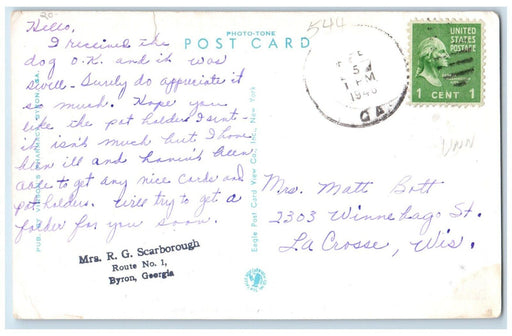 20-
544
PHOTO-TONE
POST CARD
UNITED
STATES
POSTAGE
1 CENT 1
5
1 PM
GA.
Hello,
I received the
dog O.K. and it was
swell - Surely do appreciate it
so much. Hope you
like the pot holder I sent -
it isn't much but I have
been ill and haven't been
able to get any nice cards and
pot holders. Will try to get a
folder for you soon.
Mrs. R. G. Scarborough
Route No. 1,
Byron, Georgia
Eagle Post Card View Co., Inc., New York
PUB. BY VINSON'S PHARMACY, BYRON, GA.
UNN
Mrs. Matt Bott
2303 Winnebago St.
La Crosse, Wis.